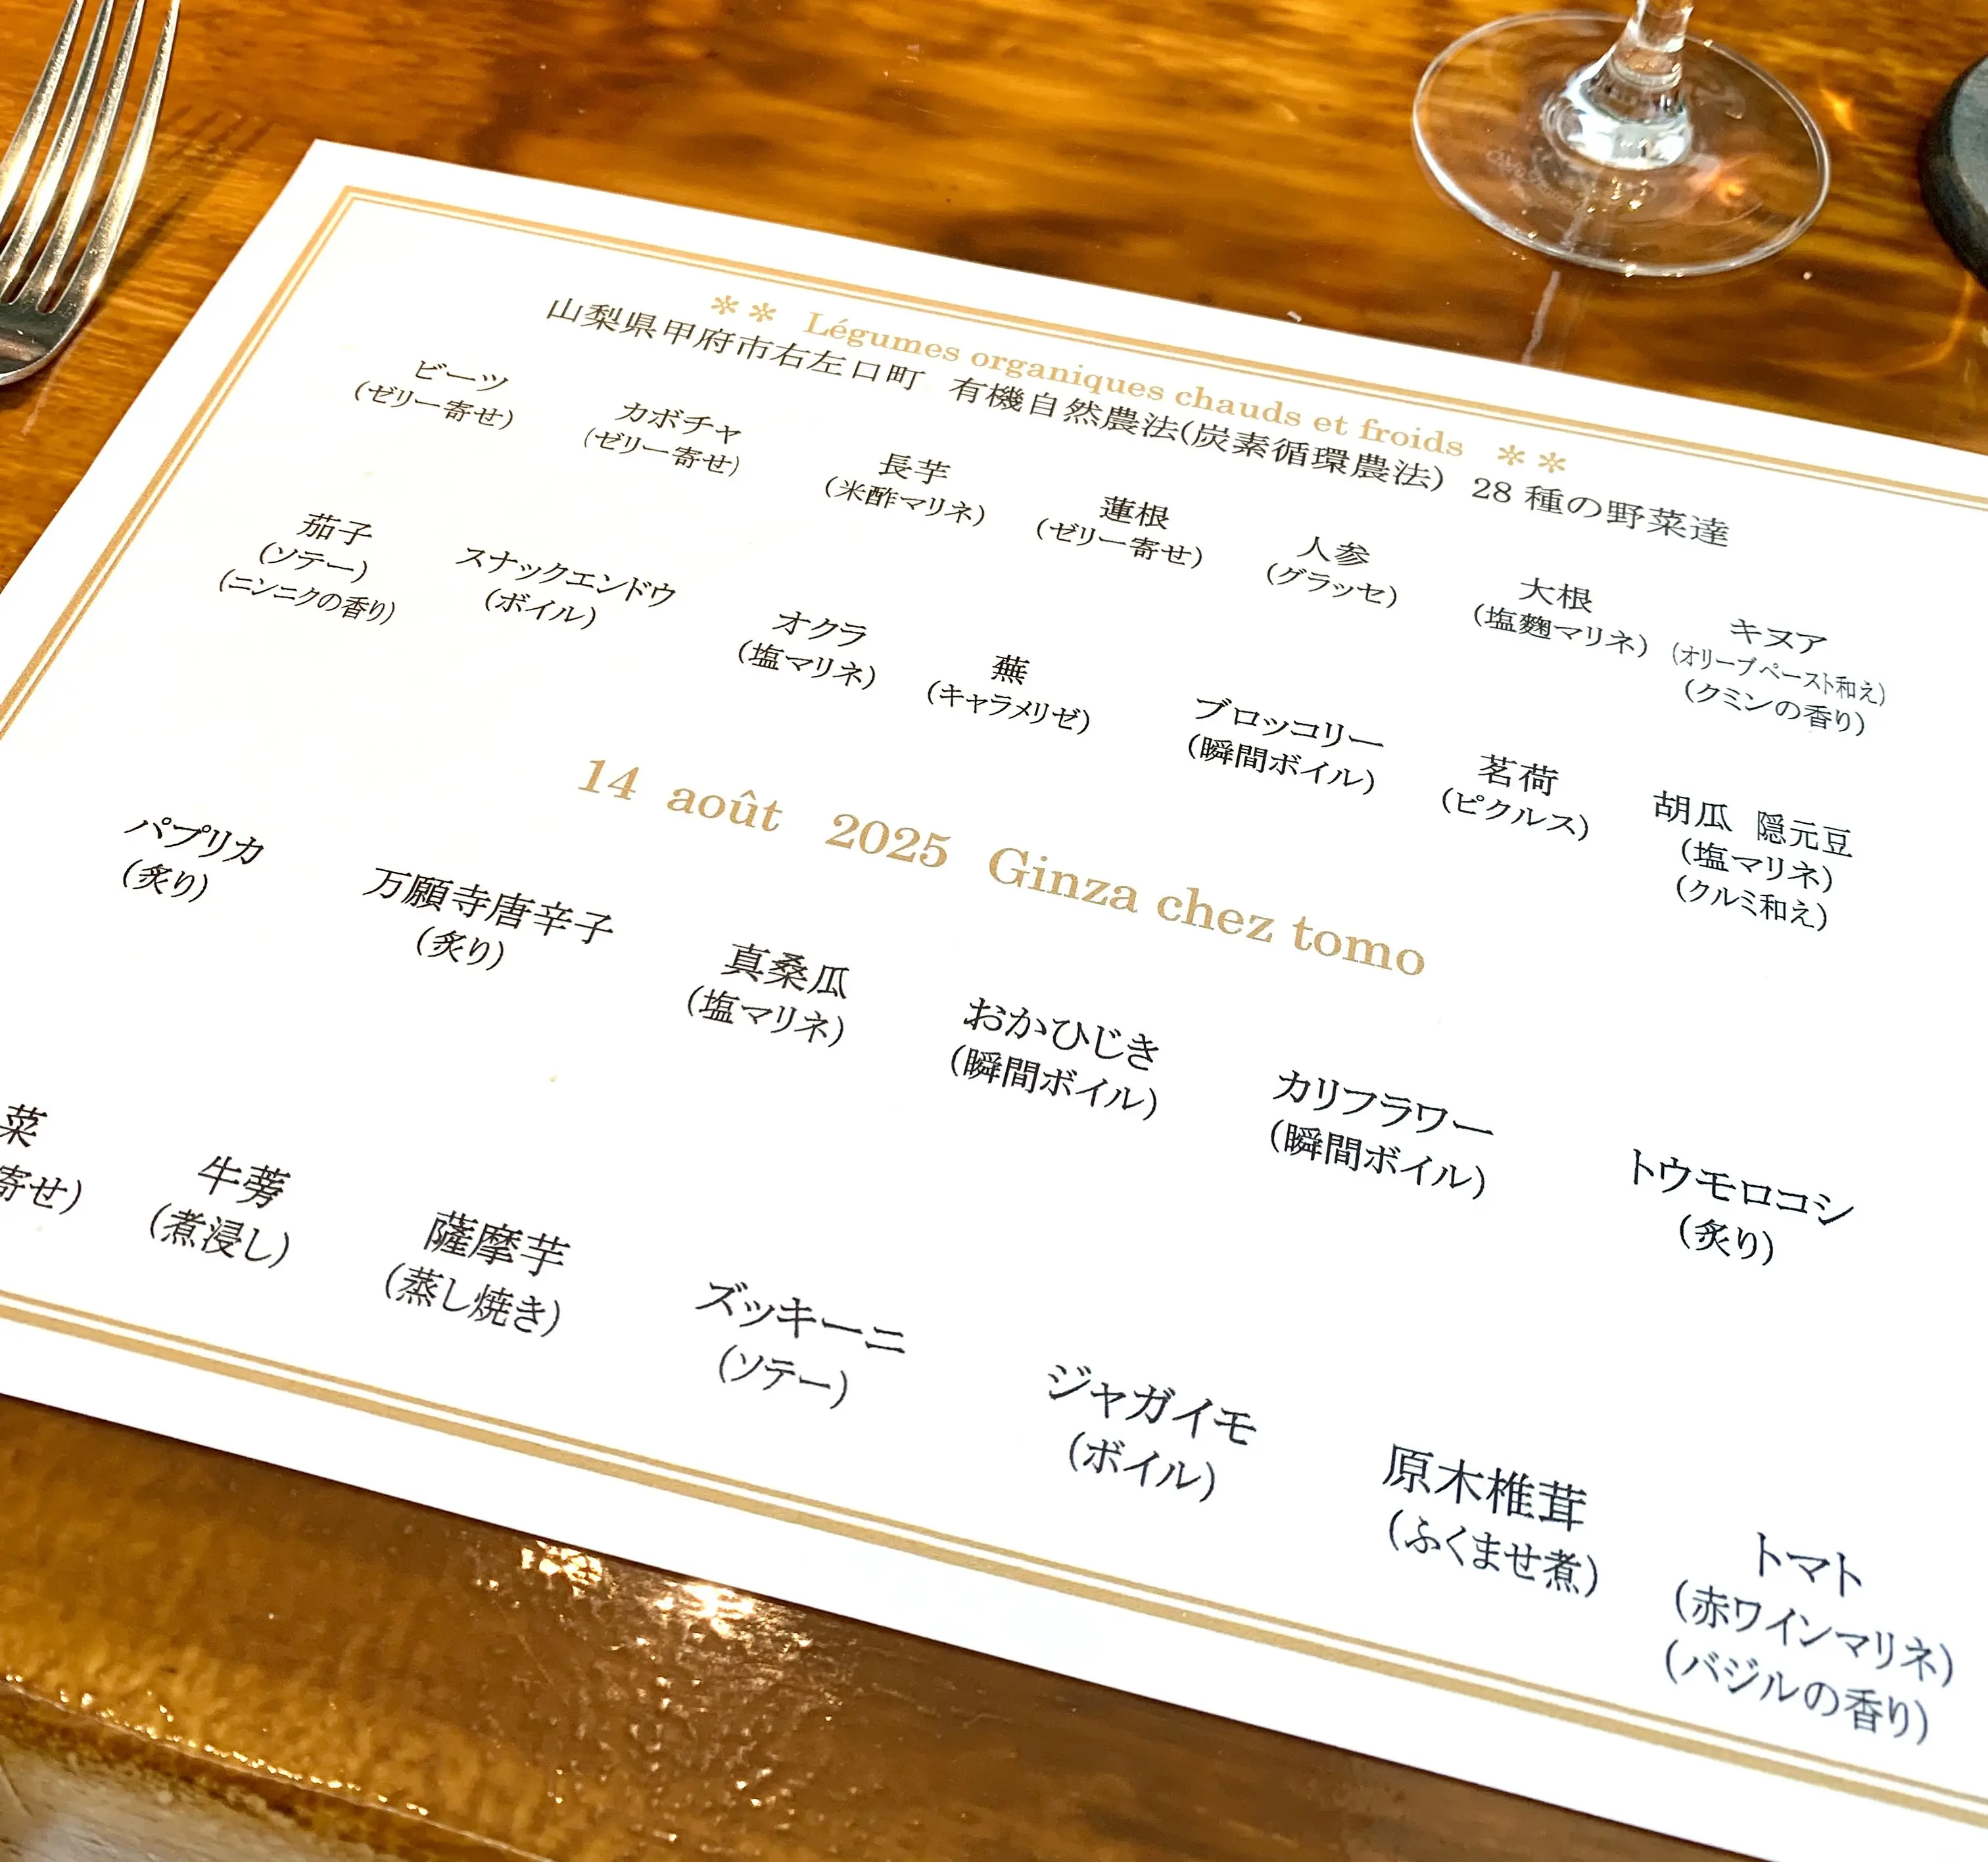 ✲✲ Légumes organiques chauds et froids ✲✲
山梨県甲府市右左口町 有機自然農法(炭素循環農法) 28種の野菜達
ビーツ
(ゼリー寄せ)
カボチャ
(ゼリー寄せ)
長芋
(米酢マリネ)
蓮根
(ゼリー寄せ)
人参
(グラッセ)
大根
(塩麹マリネ)
キヌア
(オリーブペースト和え)
(クミンの香り)
茄子
(ソテー)
(ニンニクの香り)
スナックエンドウ
(ボイル)
オクラ
(塩マリネ)
蕪
(キャラメリゼ)
ブロッコリー
(瞬間ボイル)
茗荷
(ピクルス)
胡瓜 隠元豆
(塩マリネ)
(クルミ和え)
14 août 2025 Ginza chez tomo
パプリカ
(炙り)
万願寺唐辛子
(炙り)
真桑瓜
(塩マリネ)
おかひじき
(瞬間ボイル)
カリフラワー
(瞬間ボイル)
トウモロコシ
(炙り)
菜
寄せ)
牛蒡
(煮浸し)
薩摩芋
(蒸し焼き)
ズッキーニ
(ソテー)
ジャガイモ
(ボイル)
原木椎茸
(ふくませ煮)
トマト
(赤ワインマリネ)
(バジルの香り)